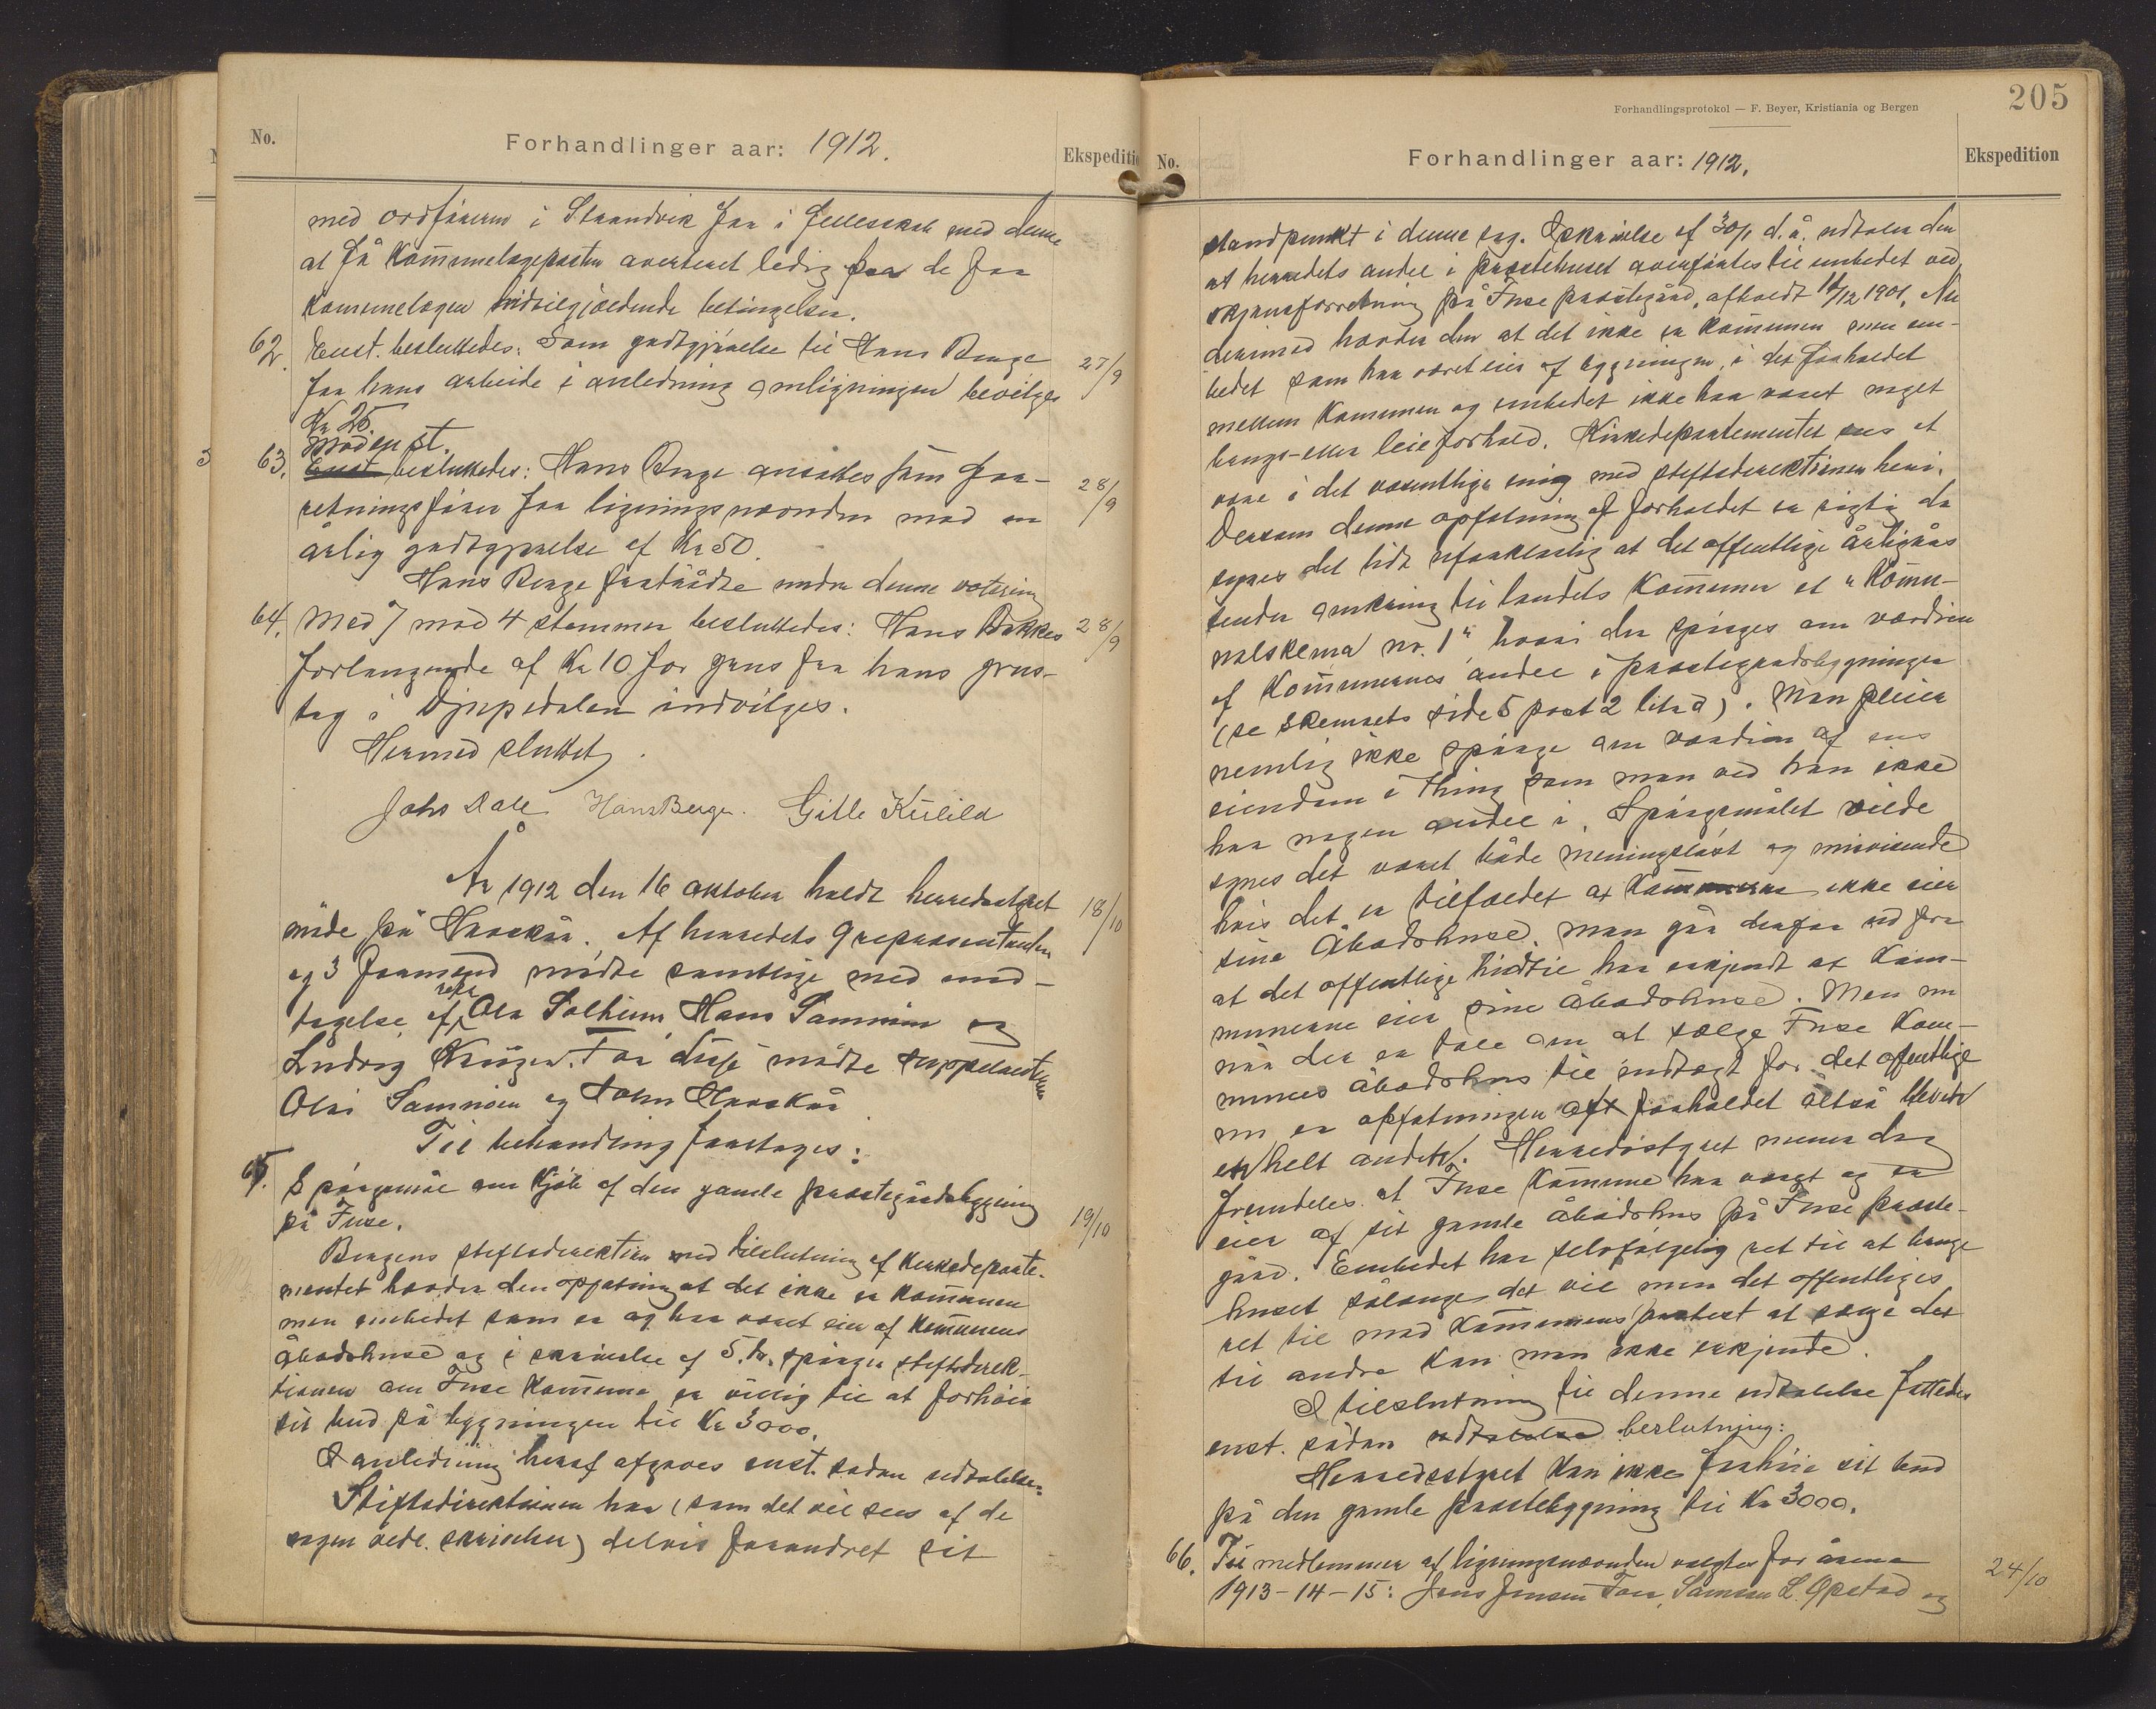 No.
Forhandlinger aar: 1912.
Ekspediti
med ordføreren i Strandvik for i fellesskab med denne
at få Kommunelægeposten averteret ledig paa de for
Kommunelægen hidtilgjældende betingelser.
62. Enst. besluttedes: Som godtgjørelse til Hans Berge 27/9
for hans arbeide i anledning omligningen bevilges
Kr 25.
Mod en st.
63. Enst. besluttedes: Hans Berge ansattes som for- 28/9
retningsfører for ligningsnævnden mod en
årlig godtgjørelse af Kr 50.
Hans Berge fratrådte under denne votering
64. Med 7 mod 4 stemmer besluttedes: Hans Bakkes 28/9
forlangende af Kr 10 for grus fra hans grus-
tag i Djupedalen indvilges.
Hermed sluttet.
Johs Dale Hans Berge. Gitle Kulild
År 1912 den 16 oktober holdt herredsstyret 18/10
møde på Havskår. Af herredets 9 repræsentanter
og 3 formænd mødte samtlige med und-
tagelse af repr Ola Solheim Hans Samnøen og
Ludvig Krüger. For disse mødte suppleanterne
Olai Samnøen og John Havskår
Til behandling foretoges:
65. Spørgsmål om Kjøb af den gamle præstegårdsbygning
på Fuse. 19/10
Bergens stiftsdirektion med tilslutning af Kirkedeparte-
mentet hævder den opfatning at det ikke er Kommunen
men embedet som er og har været eier af Kommunens
åbodshuse og i skrivelse af 5. ds. spørger stiftsdirek-
tionen om Fuse Kommune er villig til at forhøie
sit bud på bygningen til Kr 3000.
I anledning heraf afgaves enst. sådan udtalelse:
Stiftsdirektionen har (som det vil sees af de
sagen vedl. skrivelser) delvis forandret sit
Forhandlingsprotokol — F. Beyer, Kristiania og Bergen
205
No.
Forhandlinger aar: 1912.
Ekspedition
standpunkt i denne sag. I skrivelse af 30/1 d.å. udtaler den
at herredets andel i præstehuset overførtes til embedet ved
skjønsforretning på Fuse præstegård, afholdt 16/12 1901. Nu
derimod hævder den at det ikke er kommunen men em-
bedet som har været eier af bygningen, i det forholdet
mellem Kommunen og embedet ikke har været noget
brugs- eller leieforhold. Kirkedepartementet sees at
være i det væsentlige enig med stiftsdirektionen heri.
Dersom denne opfatning af forholdet er rigtig da
synes det lidt uforklarlig at det offentlige årligårs
sender omkring til landets Kommuner et "Kommu-
nalskema nr. 1" hvori der spørges om værdien
af Kommunernes andel i præstegårdsbygninger
(se skemaets side 5 post 2 litra a). Man pleier
nemlig ikke spørge om værdien af ens
eiendom i thing som man ved han ikke
har nogen andel i. Spørgsmålet vilde
synes det været både meningsløst og misvisende
hvis det er tilfældet at Kommunerne ikke eier
sine Åbodshuse. Man går derfor ud fra
at det offentlige hidtil har erkjendt at Kom-
munerne eier sine åbodshuse. Men nu
når der er tale om at sælge Fuse Kom-
munes åbodshus til indtægt for det offentlige
nu er opfatningen af forholdet altså blevet
et helt andet. Herredsstyret mener dog
fremdeles at Fuse Kommune har været og er
eier af sit gamle åbodshus på Fuse præste-
gård. Embedet har selvfølgelig ret til at bruge
huset sålænge det vil men det offentliges
ret til mod Kommunens protest at sælge det
til andre kan man ikke erkjende.
I tilslutning til denne udtalelse fattedes
enst. sådan udtalelse beslutning:
Herredsstyret kan ikke forhøie sit bud
på den gamle præstebygning til Kr 3000.
66. Til medlemmer af ligningsnævnden valgtes for årene 24/10
1913-14-15: Jens Jensen Lars Samson L. Opstad og